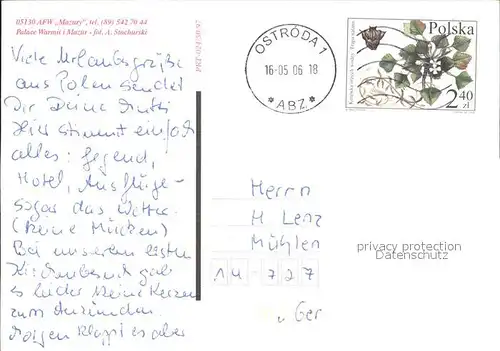 05130 AFW "Mazury", tel. (89) 542 70 44
Pałace Warmii i Mazur - fot. A. Stachurski
OSTRÓDA 1
16-05 06 18
* ABZ *
Polska
2 40
zł
Viele Urlaubsgrüße
aus Polen sendet
Dir Deine
Hier stimmt einfach
alles: Gegend,
Hotel, Ausflüge -
sogar das Wetter.
(Keine Mücken)
Bei unserem ersten
Kirchenbesuch gab
es leider keine Kerzen
zum Anzünden.
Morgen klappt es aber
Herrn
H Lenz
Mühlen
14-727
privacy protection
Datenschutz